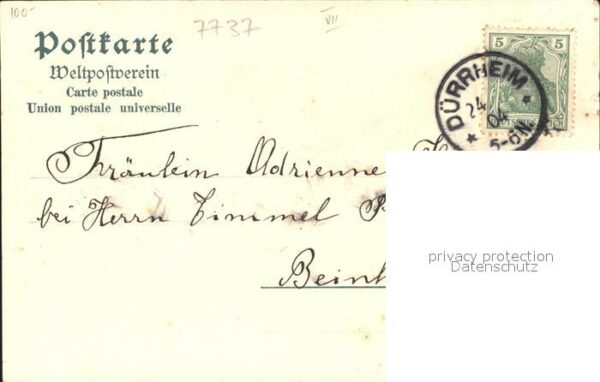 100.-
7737
VII
Postkarte
Weltpostverein
Carte postale
Union postale universelle
5 5
DÜRRHEIM
24
04
5-6N.
Fräulein Adrienne
bei Herrn Timmel
privacy protection
Datenschutz